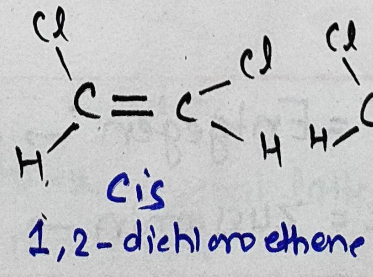 Cl Cl Cl
C = C C
H H H
Cis
1,2-dichloroethene